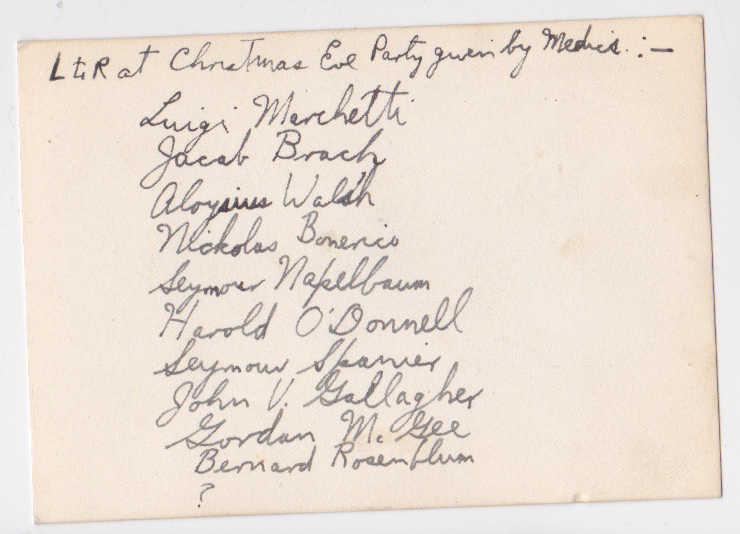 L to R at Christmas Eve Party given by Medics :—
Luigi Marchetti
Jacob Brach
Aloysius Walsh
Nickolas Bonerico
Seymour Napelbaum
Harold O'Donnell
Seymour Spanier
John V. Gallagher
Gordan Mc Gee
Bernard Rosenblum
?